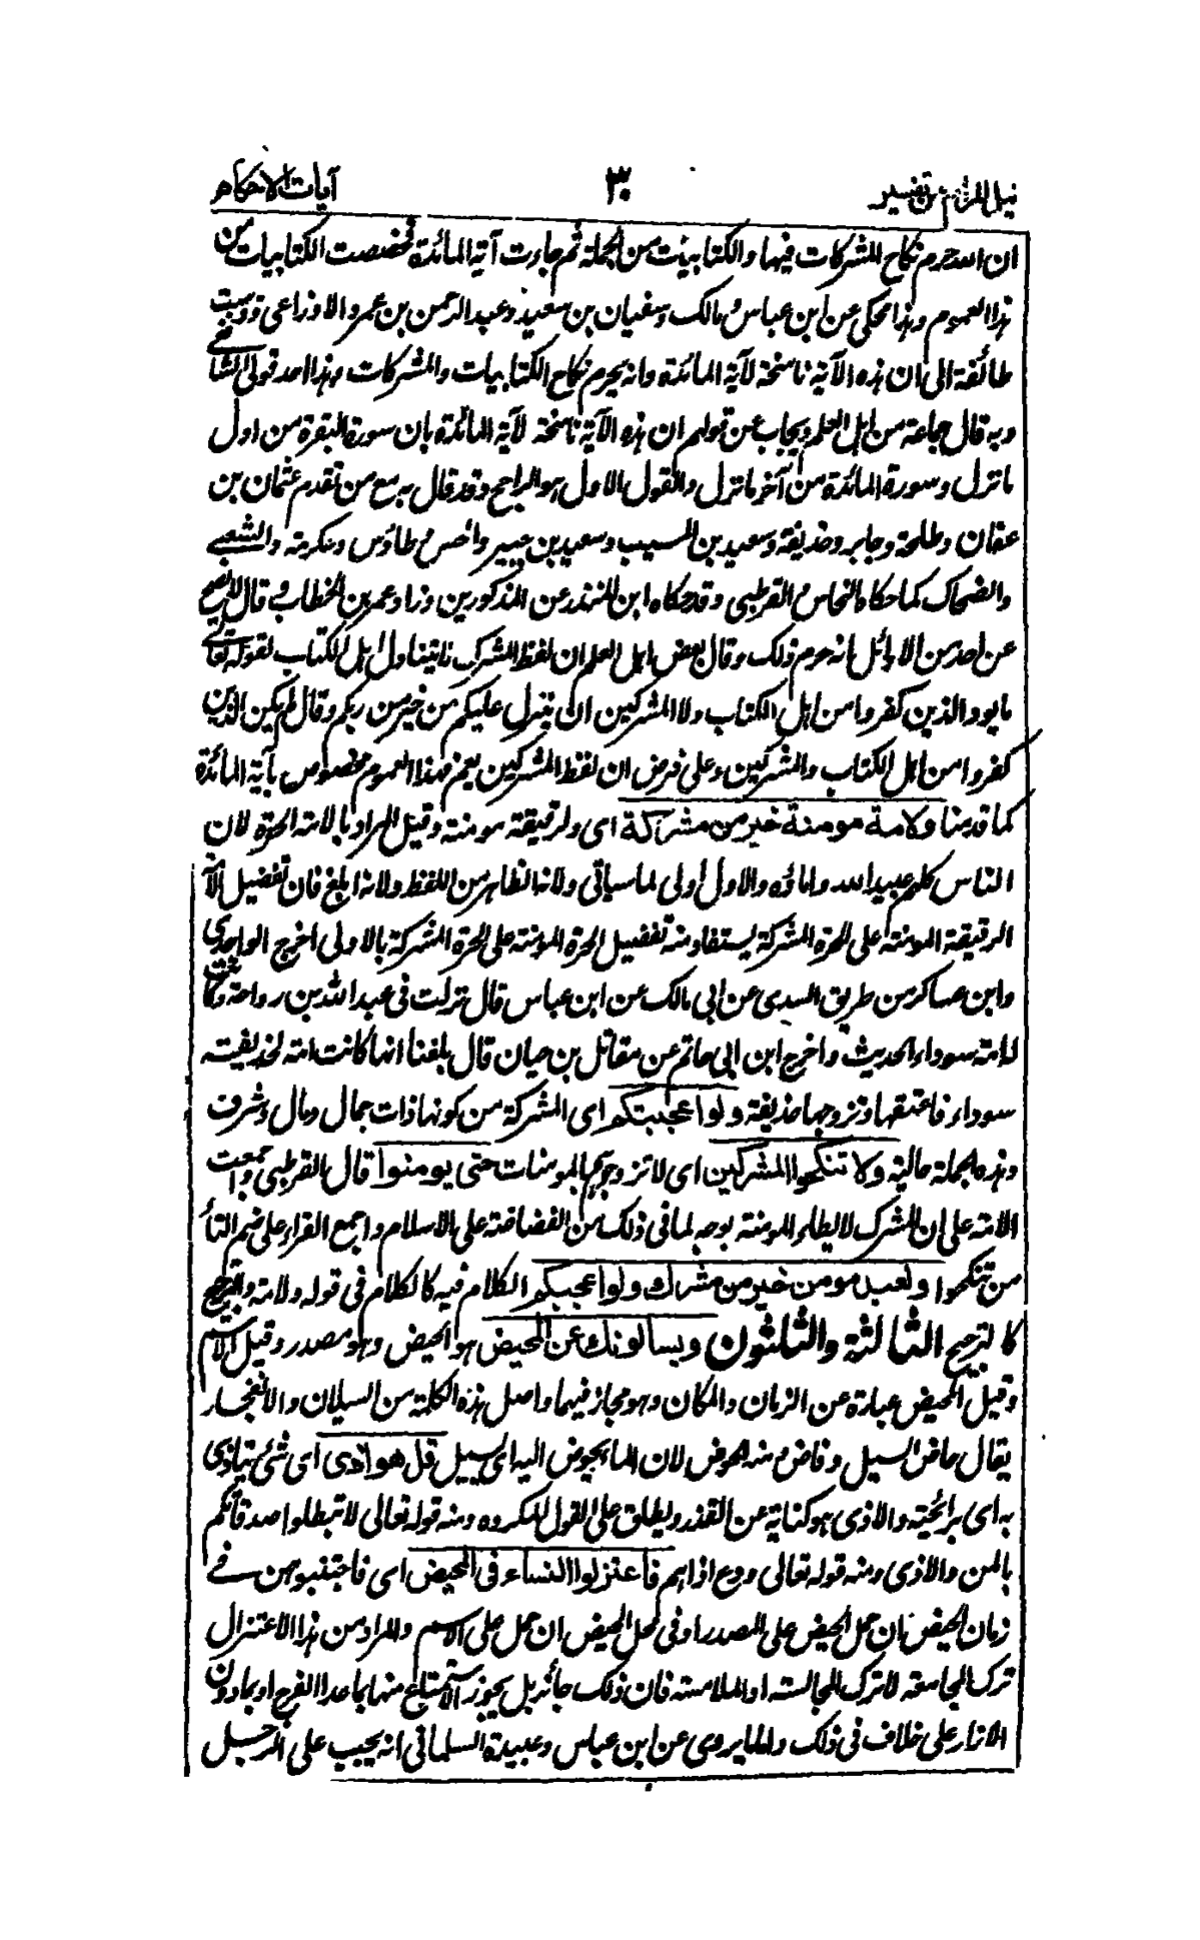 نيل المرام من تفسير ٣٠ آيات الاحكام
ان الله حرم نكاح المشركات فيها والكتابيات من الجملة ثم جاءت آية المائدة فخصصت الكتابيات من
هذا العموم وهذا محكى عن ابن عباس ومالك وسفيان بن سعيد وعبد الرحمن بن عمرو الاوزاعى وذهبت
طائفة الى ان هذه الآية ناسخة لآية المائدة وانه يحرم نكاح الكتابيات والمشركات وهذا احد قولى الشافعى
وبه قال جماعة من اهل العلم ويجاب عن قولهم ان هذه الآية ناسخة لآية المائدة بان سورة البقرة من اول
ما نزل وسورة المائدة من آخر ما نزل والقول الاول هو الراجح وقد قال به مع من تقدم عثمان بن
عفان وطلحة وجابر وحذيفة وسعيد بن المسيب وسعيد بن جبير والحسن وطاؤس وعكرمة والشعبى
والضحاك كما حكاه النحاس والقرطبى وقد حكاه ابن المنذر عن المذكورين وزاد عمر بن الخطاب وقال لا يصح
عن احد من الاوائل انه حرم ذلك وقال بعض اهل العلم ان لفظ المشرك لا يتناول اهل الكتاب لقوله تعالى
ما يود الذين كفروا من اهل الكتاب ولا المشركين ان ينزل عليكم من خير من ربكم وقال لم يكن الذين
كفروا من اهل الكتاب والمشركين وعلى فرض ان لفظ المشركين يعم فهذا العموم مخصوص بآية المائدة
كما قدمنا ولامة مومنة خير من مشركة اى ولرقيقة مومنة وقيل المراد بالامة الحرة لان
الناس كلهم عبيد الله واماؤه والاول اولى لما سياتى ولانه الظاهر من اللفظ ولانه ابلغ فان تفضيل الامة
الرقيقة المومنة على الحرة المشركة يستفاد منه تفضيل الحرة المومنة على الحرة المشركة بالاولى اخرج الواحدى
وابن عساكر من طريق السدى عن ابى مالك عن ابن عباس قال نزلت فى عبد الله بن رواحة وكانت
له امة سوداء الحديث واخرج ابن ابى حاتم عن مقاتل بن حيان قال بلغنا انها كانت امة لحذيفة
سوداء فاعتقها وتزوجها حذيفة ولو اعجبتكم اى المشركة من كونها ذات جمال ومال وشرف
وهذه الجملة حالية ولا تنكحوا المشركين اى لا تزوجوهم بالمومنات حتى يومنوا قال القرطبى واجمعت
الامة على ان المشرك لا يطأ المومنة بوجه لما فى ذلك من الغضاضة على الاسلام واجمع القراء على ضم التاء
من تنكحوا ولعبد مومن خير من مشرك ولو اعجبكم الكلام فيه كالكلام فى قوله ولامة والترجيح
كالترجيح الثالثة والثلثون ويسالونك عن المحيض هو الحيض وهو مصدر وقيل الاسم
وقيل المحيض عبارة عن الزمان والمكان وهو مجاز فيهما واصل هذه الكلمة من السيلان والانفجار
يقال حاض السيل وفاض ومنه الحوض لان الماء يحوض اليه اى يسيل قل هو اذى اى شئ يتاذى
به اى برائحته والاذى هو كناية عن القذر ويطلق على القول المكروه ومنه قوله تعالى لا تبطلوا صدقاتكم
بالمن والاذى ومنه قوله تعالى ودع اذاهم فاعتزلوا النساء فى المحيض اى فاجتنبوهن فى
زمان الحيض ان حمل المحيض على المصدر او فى محل الحيض ان حمل على الاسم والمراد من هذا الاعتزال
ترك المجامعة لا ترك المجالسة او الملامسة فان ذلك جائز بل يجوز الاستمتاع منها بما عدا الفرج او بما دون
الازار على خلاف فى ذلك واما ما يروى عن ابن عباس وعبيدة السلمانى انه يجب على الرجل